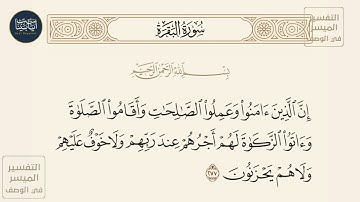 سُورَةُ الْبَقَرَةِ
التفسير
الميسر
في الوصف
بِسْمِ اللَّهِ الرَّحْمَٰنِ الرَّحِيمِ
إِنَّ الَّذِينَ ءَامَنُوا۟ وَعَمِلُوا۟ الصَّٰلِحَٰتِ وَأَقَامُوا۟ الصَّلَوٰةَ
وَءَاتَوُا۟ الزَّكَوٰةَ لَهُمْ أَجْرُهُمْ عِندَ رَبِّهِمْ وَلَا خَوْفٌ عَلَيْهِمْ
وَلَا هُمْ يَحْزَنُونَ ٢٧٧
التفسير
الميسر
في الوصف